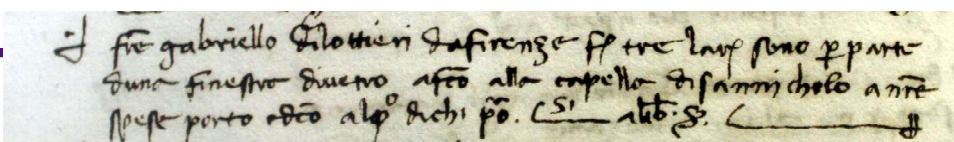 frẽ gabriello dilottieri dafirenze fl tre larg sono p parte
duna finestra diuetro afcõ alla capella disannicholo anrẽ
spese porto edcõ alpº dichi pᵃo. S. alib. S.